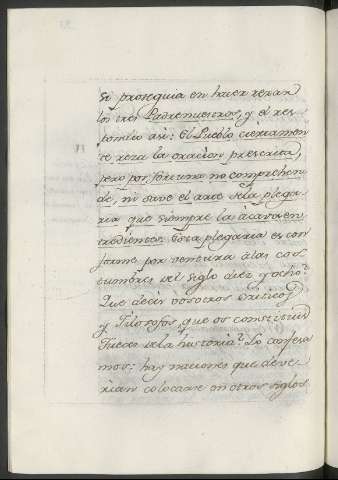 si proseguia en hacer rezar
los tres Padrenuestros, y el res
pondio asi: El Pueblo ciertamen
te reza la oracion prescrita,
pero por fortuna no comprehen
de, ni save el arte de la plega
ria que siempre la acava en
tredientes. Esta plegaria es con
forme por ventura á las cos
tumbres del siglo diez y ocho?
Que decis vosotros Criticos
y Filosofos, que os constituis
Jueces de la historia? Lo confesa
mos: hay naciones que deve
rian colocarse en otros siglos